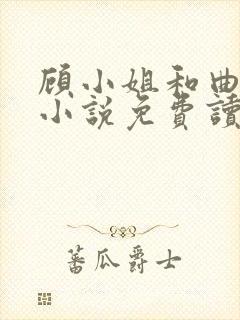 顾小姐和曲
小説免費讀
蕃瓜爵士